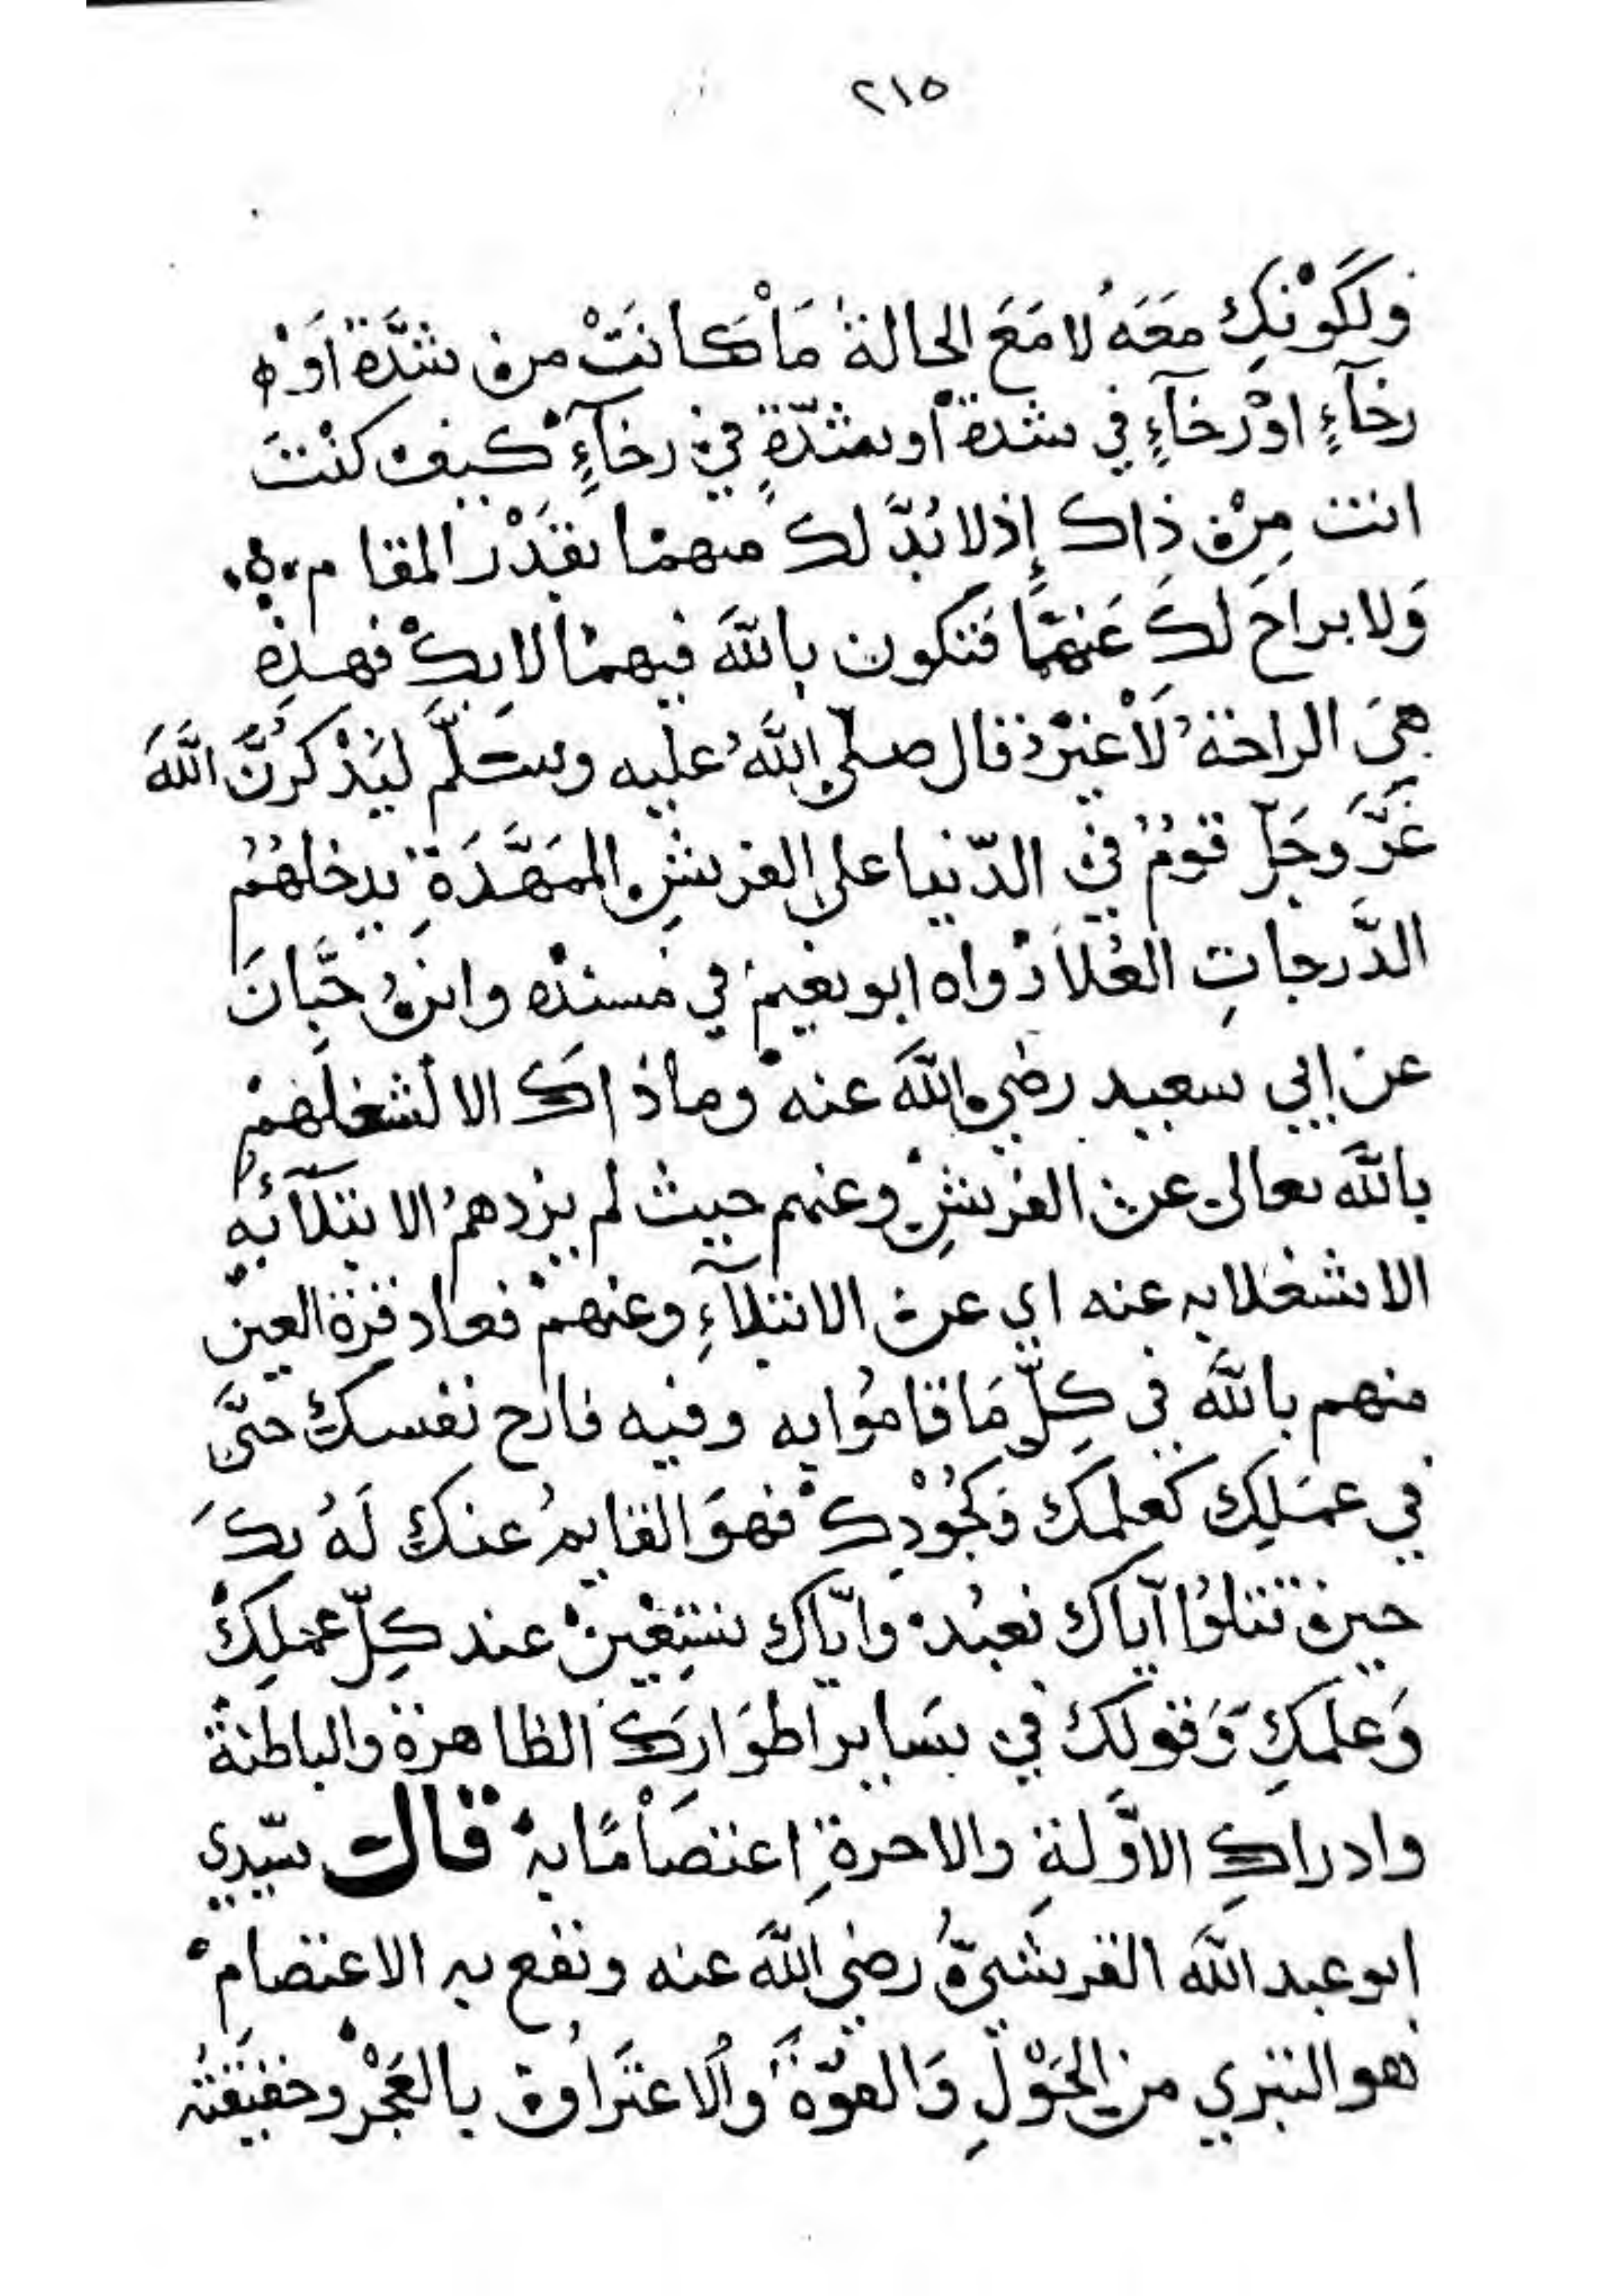 ٢١٥
ولكَوْنِكِ معَهُ لا مَعَ الحالة مَا كانَتْ من شدَّة اَوْ
رخآءٍ اوْ رخآءٍ في شدة او شدّةٍ في رخآءٍ كيف كنْتَ
انت مِنْ ذاك إذ لا بُدَّ لك منهما بقَدْر المقام
وَلا براحَ لكَ عَنهمَا فتكون باللهَ فيهما لا بكْ فهذِه
هيَ الراحَة لَا غيرْ قال صلى اللهُ عليه وسَلَّم ليَذْكرُنَّ اللهَ
عَزَّ وجَلّ قومُ في الدّنيا على الفرشِ الممَهَّدَةِ يدخلهُمُ
الدَّرجاتِ العُلا رْواه ابو نعيم في مسندْه وابنُ حبَّانَ
عن ابي سعيد رضي اللهَ عنه وما ذاكَ الا لشغلهمْ
باللهَ تعالى عن الفرشِ وعنهم حيث لم يزدهمُ الابتلآءُ به
الا شغلا به عنه اي عن الابتلآءِ وعنهمْ فعاد قرة العين
منهم باللهَ في كلّ مَا قامُوا به وفيه فارح نفسك حتَّى
في عمَلِك كعلمك وَكجُوْدِكْ فهوَ القايمُ عنك لَهُ بكَ
حين تتلوُا آياك نعبُدُ وايّاك نستعْينْ عند كلّ عملِكْ
وَعلمكِ وَقولك في سَاير اطوَارِكَ الظاهرة والباطنة
وادراكِ الاوَّلةِ والاخرةِ اعتصَامًا بهُ قال سيّدي
ابو عبد اللهَ القرشيّ رضي اللهَ عنه ونفع به الاعتصامْ
هو التبري من الحَوْلِ وَالقوّة وَالاعتَراف بالعَجْز وحقيقته